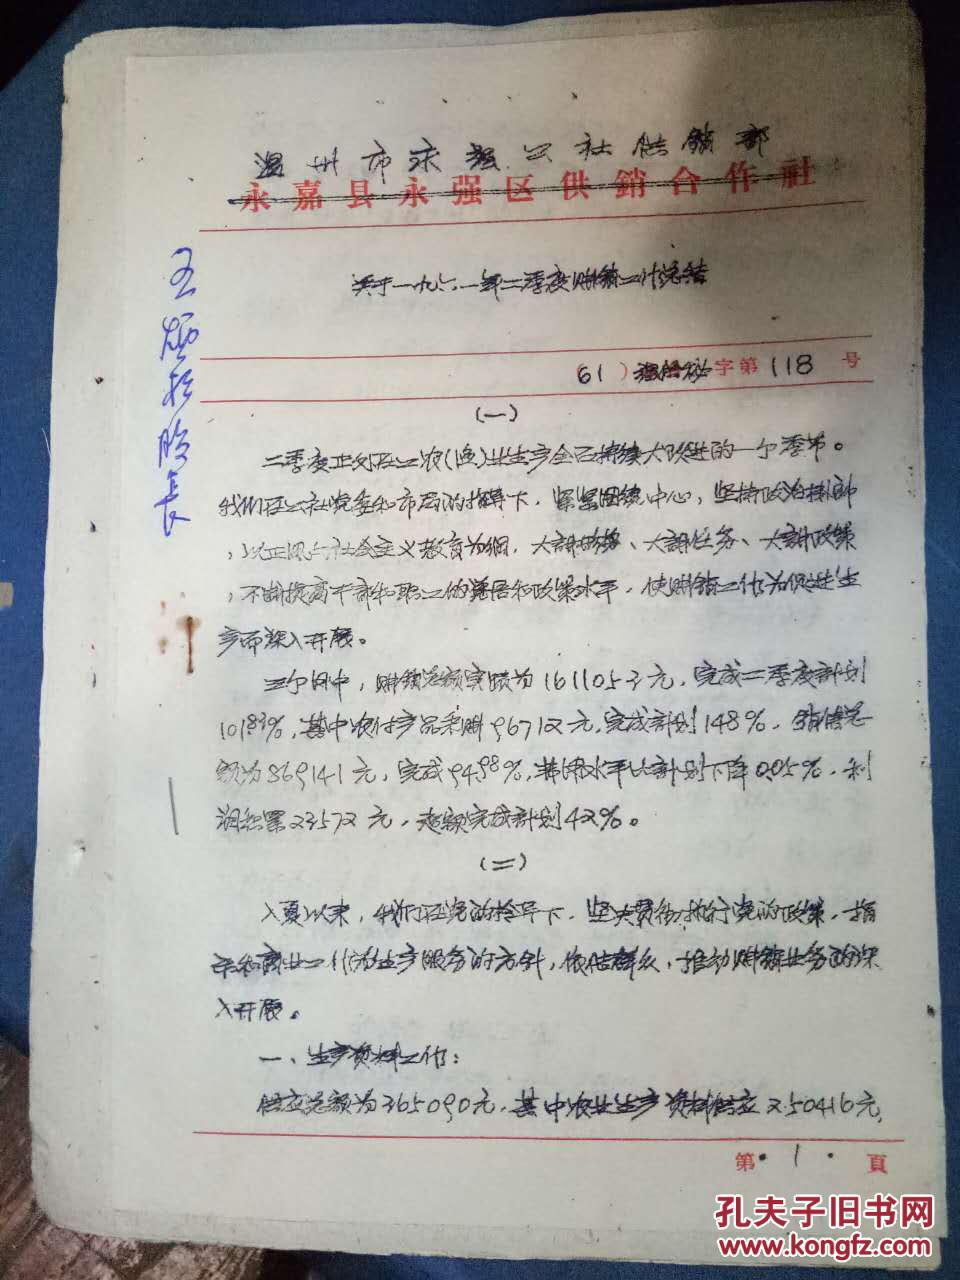 温州市永强公社供销部
永嘉县永强区供銷合作社
关于一九六一年二季度购销工作总结
(61)温供秘字第118号
王
股长
(一)
二季度正处在工农(渔)业生产全面持续大跃进的一个季节。
我们在公社党委和市局的指导下，紧紧围绕中心，坚持政治挂帅
，以正风与社会主义教育为纲，大讲形势、大讲任务、大讲政策
，不断提高干部和职工的觉悟和政策水平，使购销工作为促进生
产而深入开展。
三个月中，购销总额实绩为1611053元，完成二季度計划
101.83%，其中农付产品采购96712元，完成計划148%，銷售总
额为869141元，完成94.98%，费用水平比計划下降0.05%，利
润积累23572元，超额完成計划42%。
(二)
入夏以来，我们在党的领导下，坚决贯彻执行党的政策，指
示和商业工作为生产服务的方針，依靠群众，推动购销业务的深
入开展。
一、生产资料工作：
供应总额为365090元，其中农业生产资料供应250416元，
第 1 頁
孔夫子旧书网
www.kongfz.com